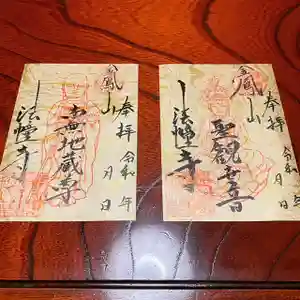 奉拝
令和 年 月 日
鳳山
南無地蔵尊
法幢寺
奉拝
令和 年 月 日
鳳山
聖観世音
法幢寺